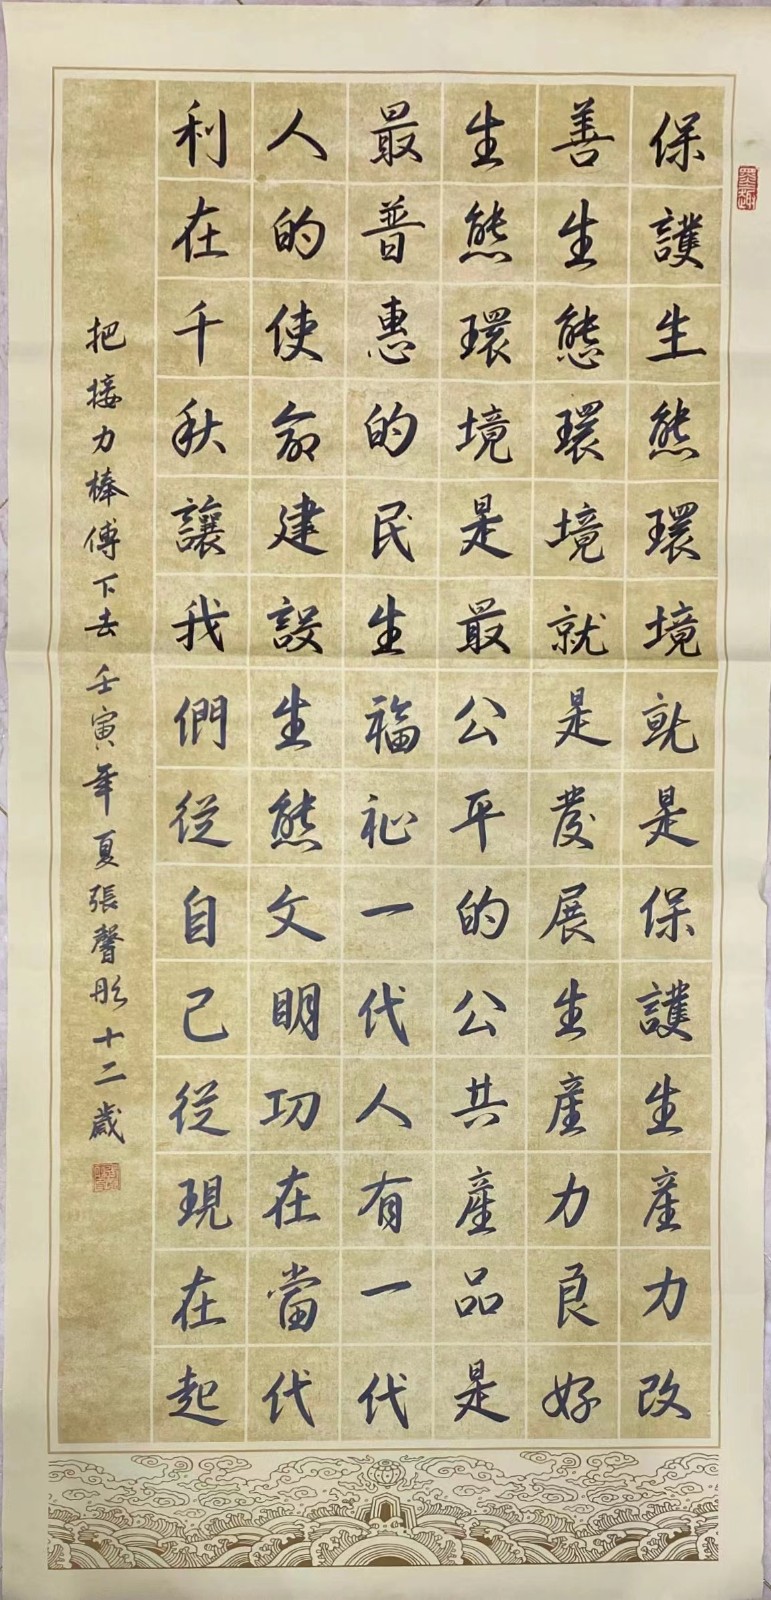 保護生熊環境就是保護生產力改
善生態環境就是發展生產力良好
生熊環境是最公平的公共產品是
最普惠的民生福祉一代人有一代
人的使命建設生熊文明功在當代
利在千秋讓我們從自己從現在起
把接力棒傳下去壬寅年夏張馨彤十二歲